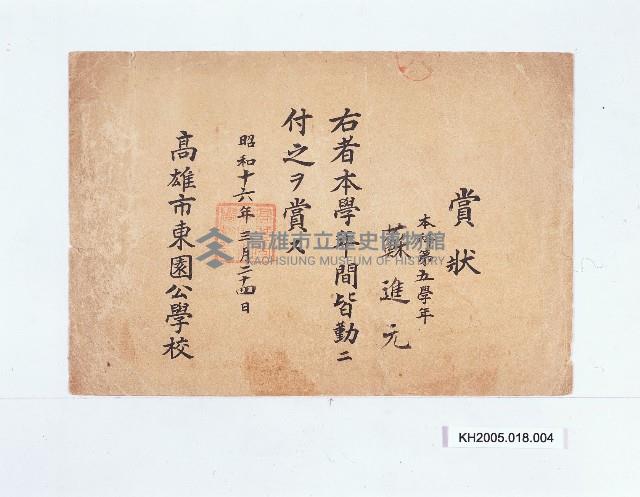 賞狀
本科第五學年
蘇進元
右者本學年間皆勤ニ
付之ヲ賞ス
昭和十六年三月二十四日
高雄市東園公學校
高雄市立歷史博物館
KAOHSIUNG MUSEUM OF HISTORY
KH2005.018.004